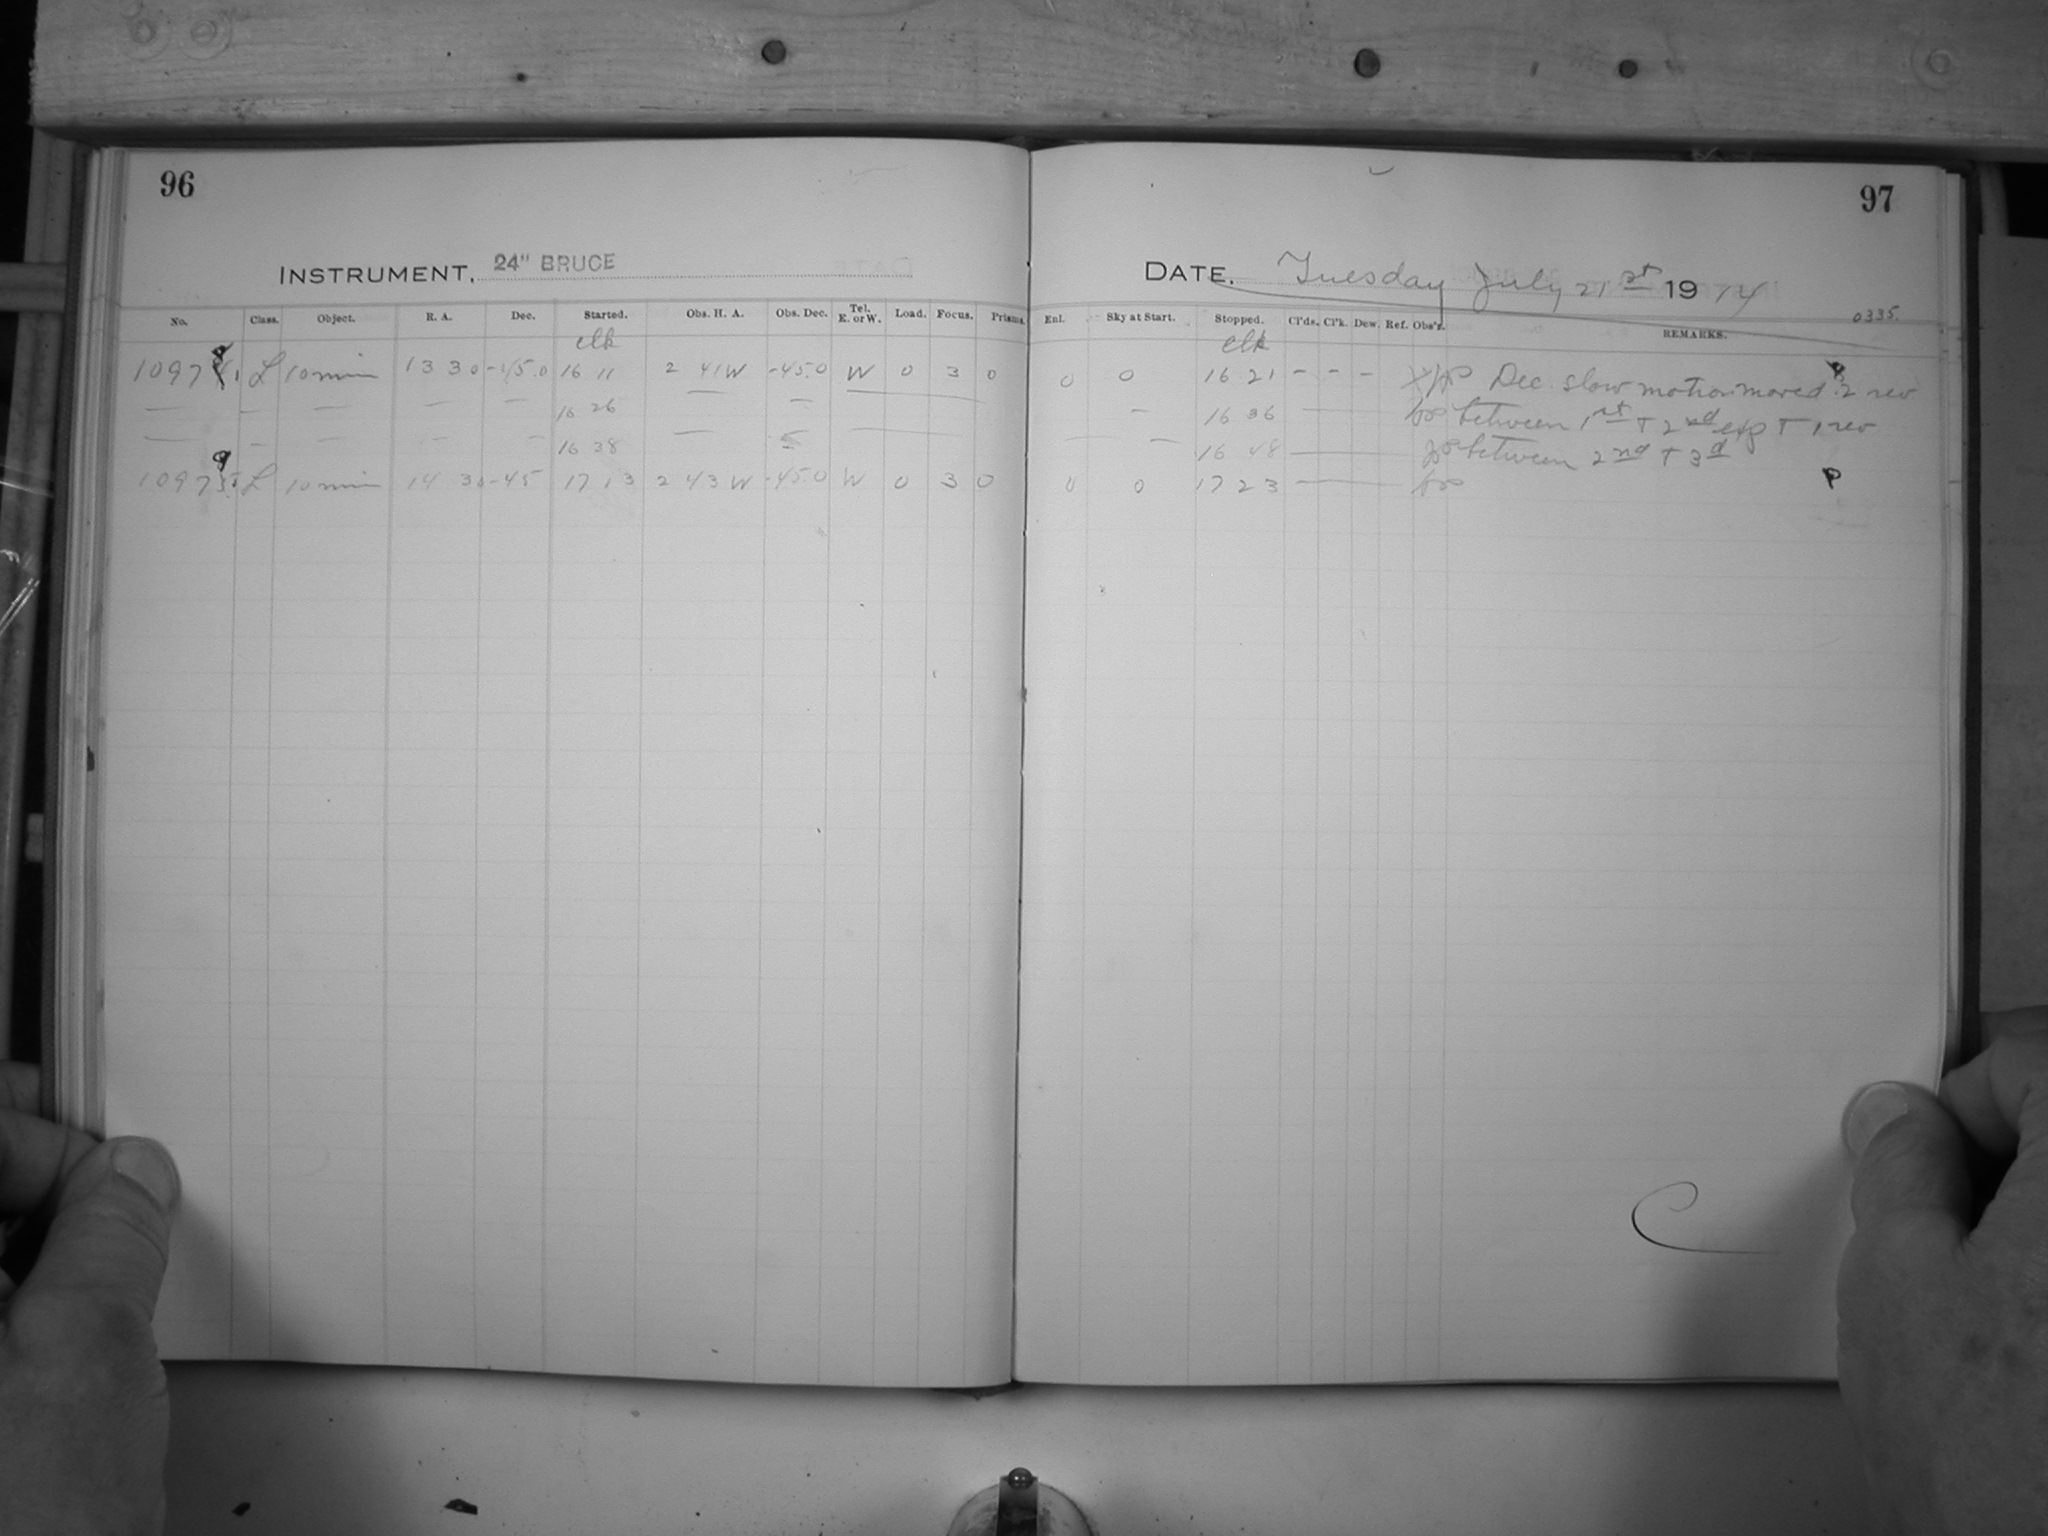 96
INSTRUMENT, 24" BRUCE
No. Class. Object. R. A. Dec. Started. Obs. H. A. Obs. Dec. Tel. E. or W. Load. Focus. Prisms.
clk
1097 L 10 min 13 30 -45.0 16 11 2 41 W -45.0 W 0 3 0
— — — — — 16 26 — — —
— — — — — 16 38 — — —
1097 L 10 min 14 30 -45 17 13 2 43 W -45.0 W 0 3 0
97
DATE, Tuesday July 21st 1914
0335.
Enl. Sky at Start. Stopped. Cl'ds. Cl'k. Dew. Ref. Obs'r. REMARKS.
clk
0 0 16 21 – – – Dec. slow motion moved 2 rev
— 16 36 — between 1st + 2nd exp + 1 rev
— — 16 48 — between 2nd + 3d
0 0 17 23 — P